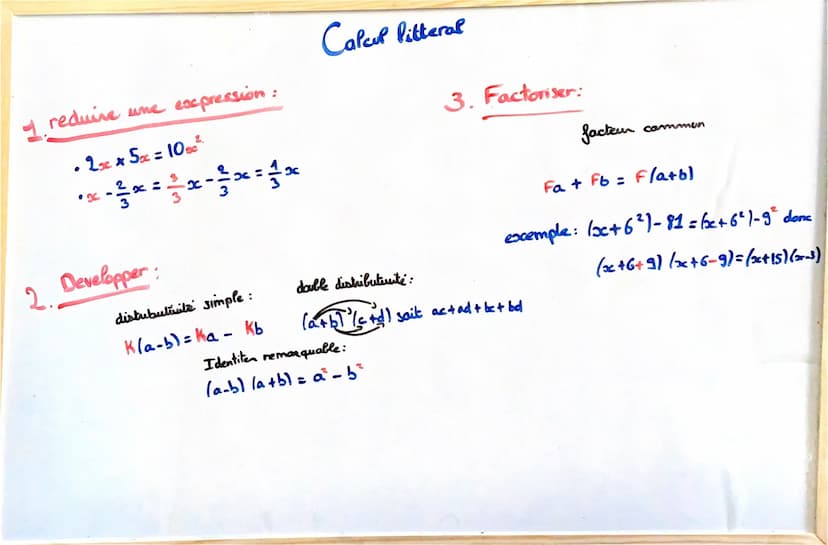 Calcul litteral
1. reduire une expression :
• 2x × 5x = 10x²
• x - 2/3 x = 3/3 x - 2/3 x = 1/3 x
2. Developper :
distributivité simple :
K(a-b) = Ka - Kb
double distributivité :
(a+b) (c+d) soit ac+ad+bc+bd
Identiter remarquable :
(a-b) (a+b) = a² - b²
3. Factoriser :
facteur commun
Fa + Fb = F(a+b)
exemple : (x+6²)-81 = (x+6²)-9² donc
(x+6+9) (x+6-9) = (x+15) (x-3)